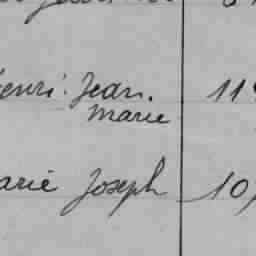 enri Jean. 11
marie
arie Joseph 10